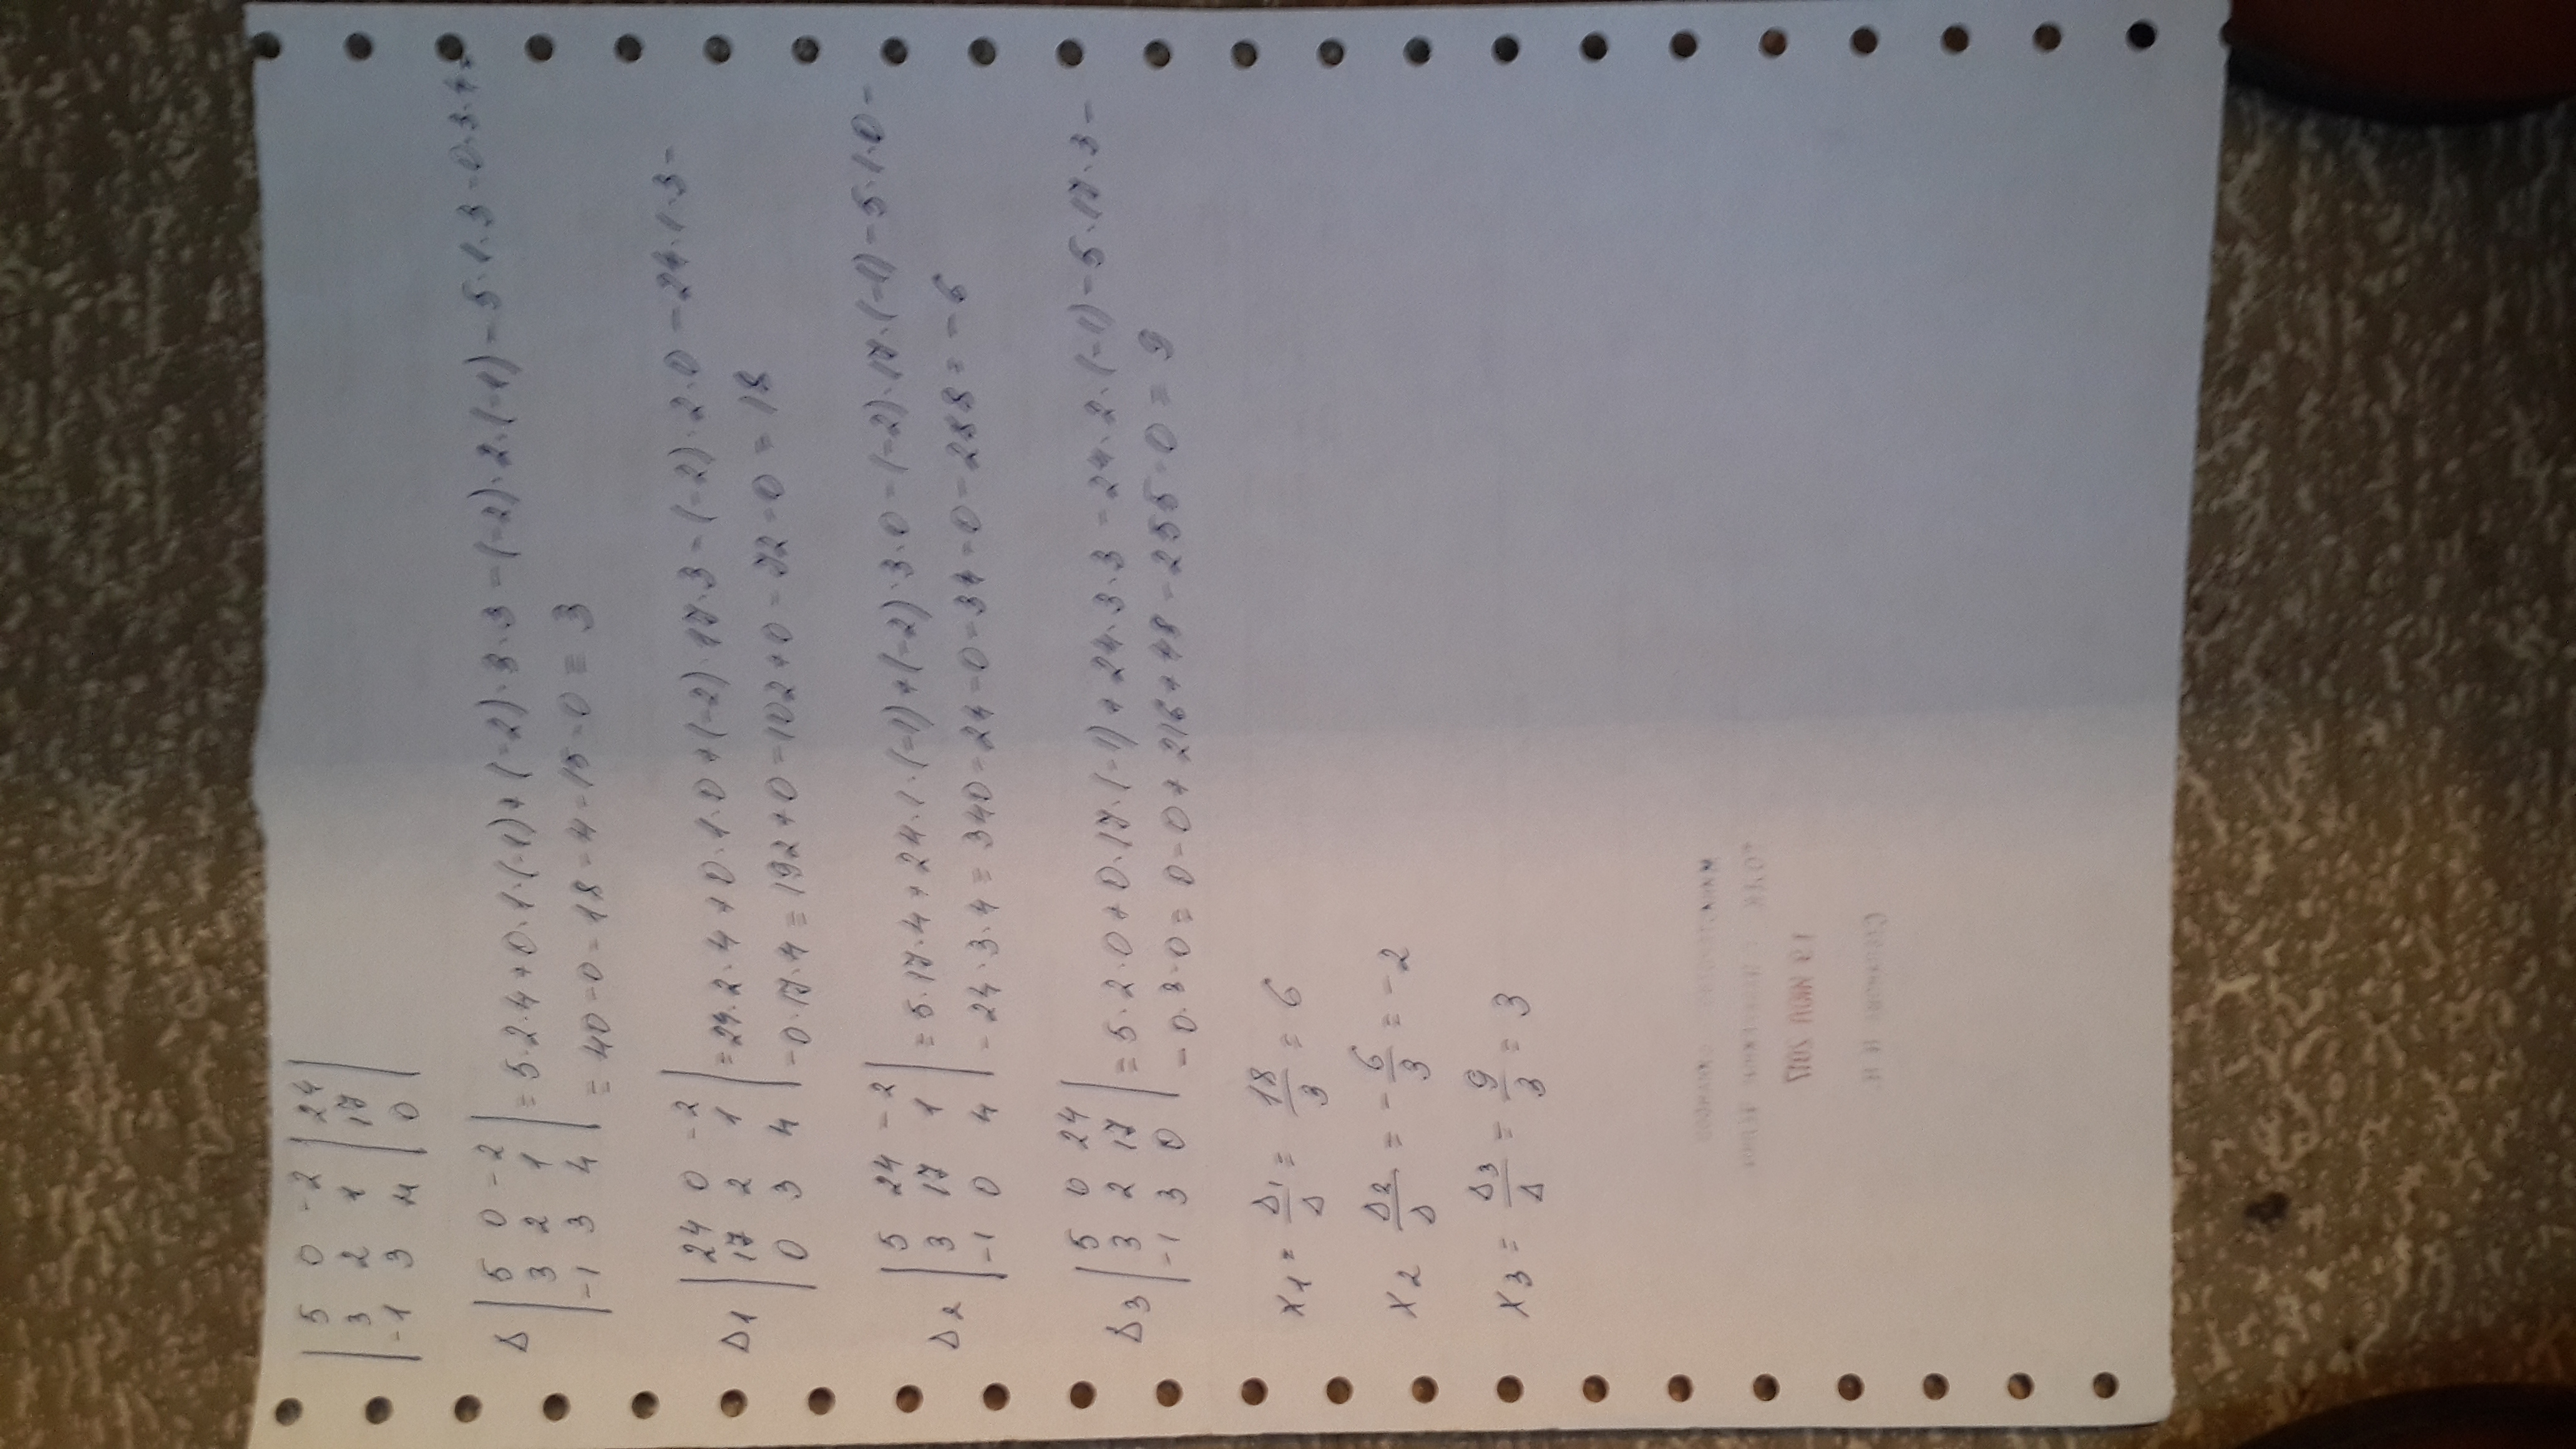 | 5 0 -2 | 24 |
| 3 2 1 | 17 |
| -1 3 4 | 0 |
Δ | 5 0 -2 |
| 3 2 1 | = 5·2·4+0·1·(-1)+(-2)·3·3-(-2)·2·(-1)-5·1·3-0·3·4=
| -1 3 4 | = 40-0-18-4-15-0=3
Δ1 | 24 0 -2 |
| 17 2 1 | =24·2·4+0·1·0+(-2)·17·3-(-2)·2·0-24·1·3-
| 0 3 4 | -0·17·4=192+0-102+0-72-0=18
Δ2 | 5 24 -2 |
| 3 17 1 | =5·17·4+24·1·(-1)+(-2)·3·0-(-2)·17·(-1)-5·1·0-
| -1 0 4 | -24·3·4=340-24-0-34-0-288=-6
Δ3 | 5 0 24 |
| 3 2 17 | =5·2·0+0·17·(-1)+24·3·3-24·2·(-1)-5·17·3-
| -1 3 0 | -0·3·0=0-0+216+48-255-0=9
x1 = Δ1/Δ = 18/3 = 6
x2 = Δ2/Δ = -6/3 = -2
x3 = Δ3/Δ = 9/3 = 3